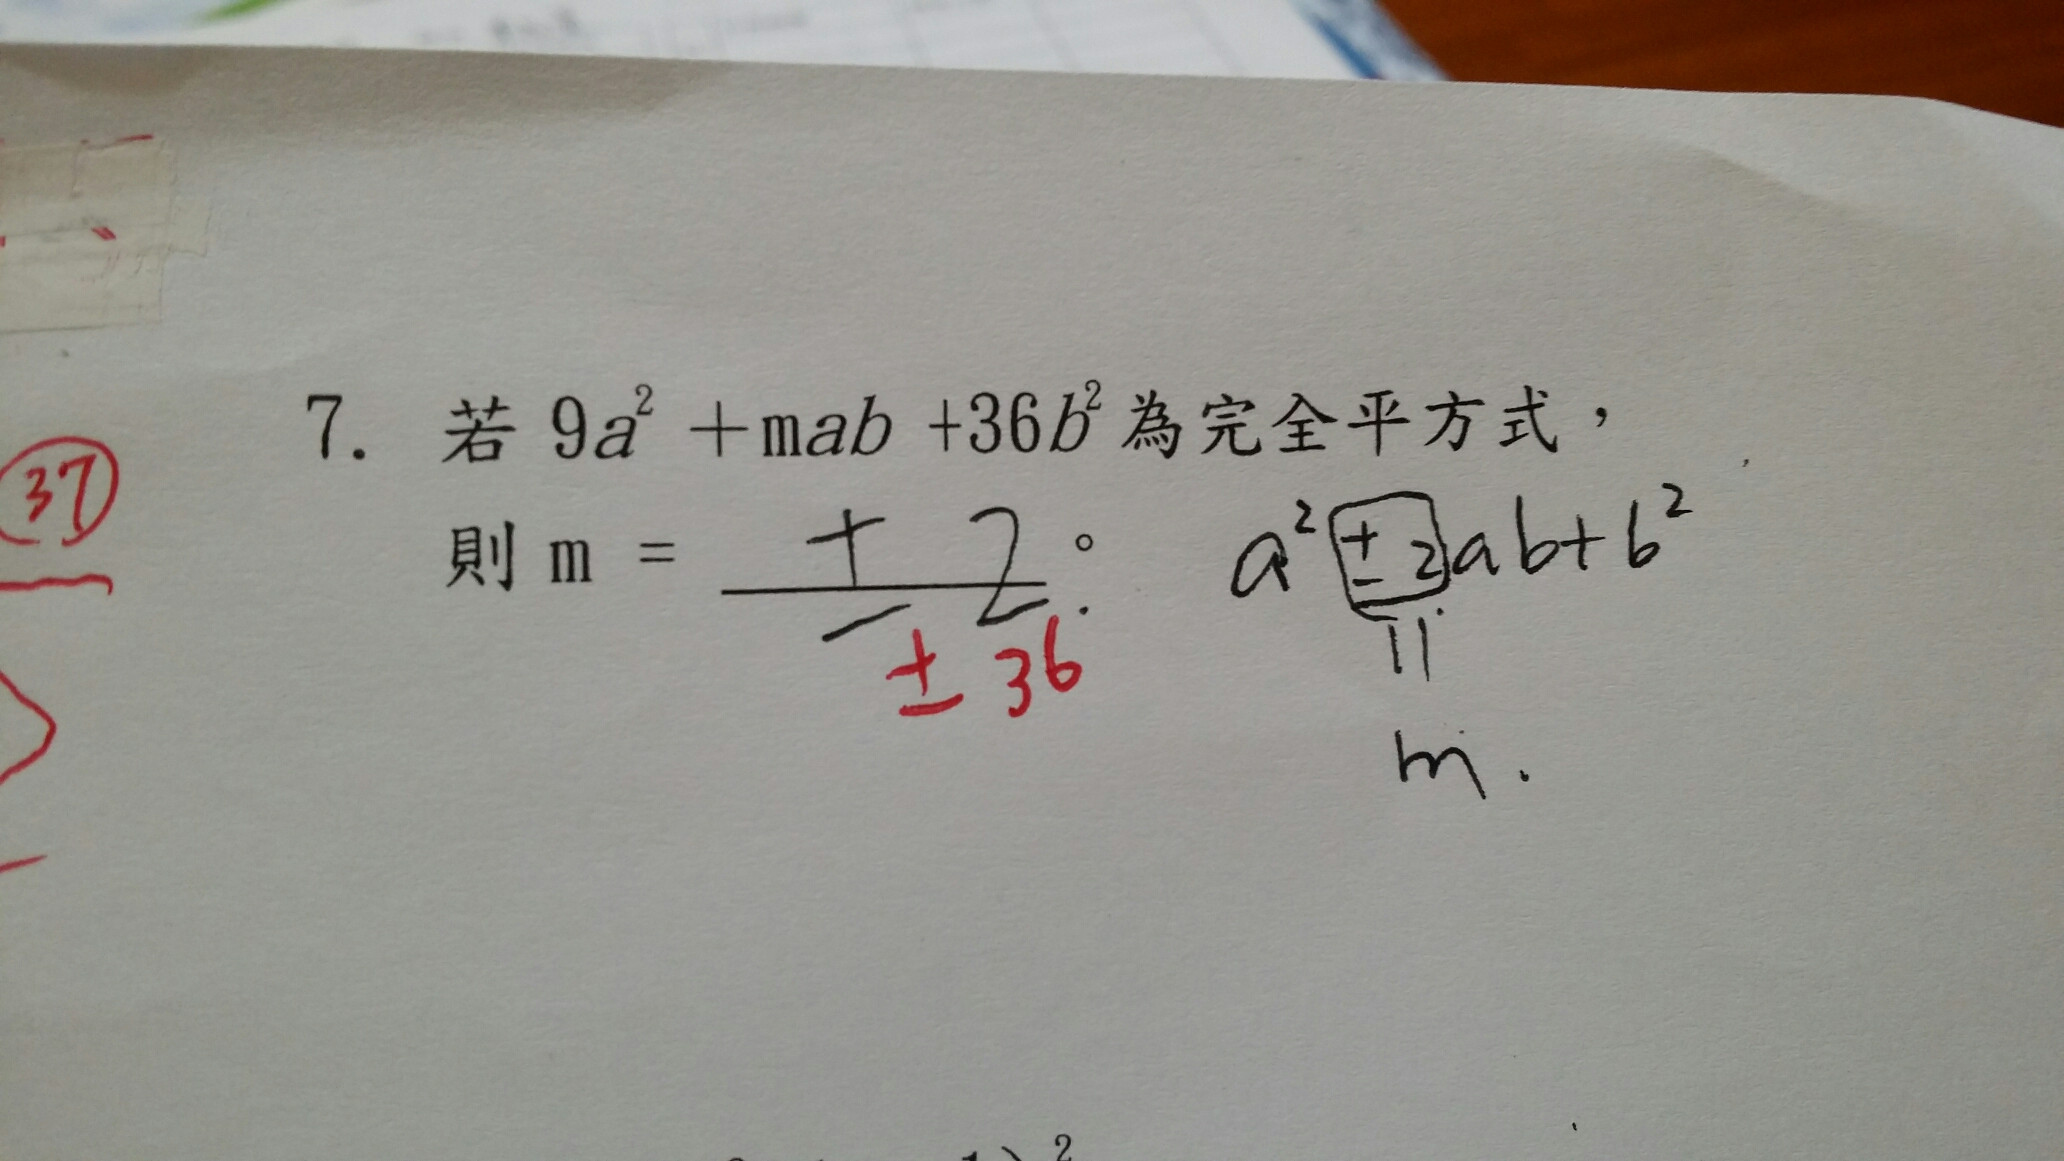 37
7. 若 9a² +mab +36b² 為完全平方式，
則 m = ± 2 。
± 36
a² ± 2ab+b²
=
m.
2